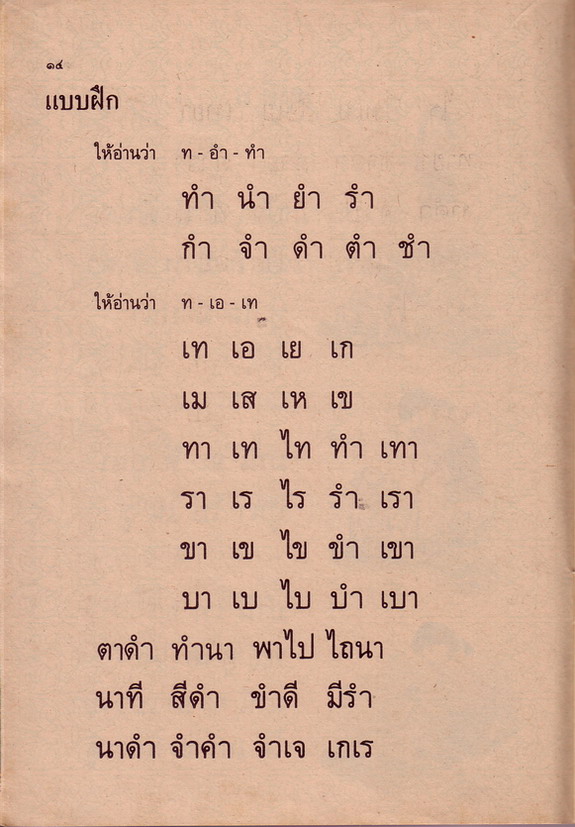 ๑๔
แบบฝึก
ให้อ่านว่า ท - อำ - ทำ
ทำ นำ ยำ รำ
กำ จำ ดำ ตำ ชำ
ให้อ่านว่า ท - เอ - เท
เท เอ เย เก
เม เส เห เข
ทา เท ไท ทำ เทา
รา เร ไร รำ เรา
ขา เข ไข ขำ เขา
บา เบ ไบ บำ เบา
ตาดำ ทำนา พาไป ไถนา
นาที สีดำ ขำดี มีรำ
นาดำ จำคำ จำเจ เกเร